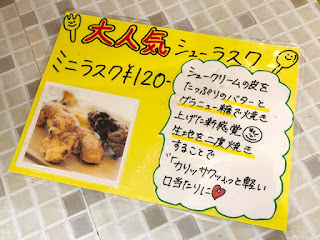 大人気シューラスク
ミニラスク¥120-
シュークリームの皮を
たっぷりのバターと
グラニュー糖で焼き
上げた新感覚
生地を二度焼き
することで
"カリッサクッふっと軽い
口当たりに